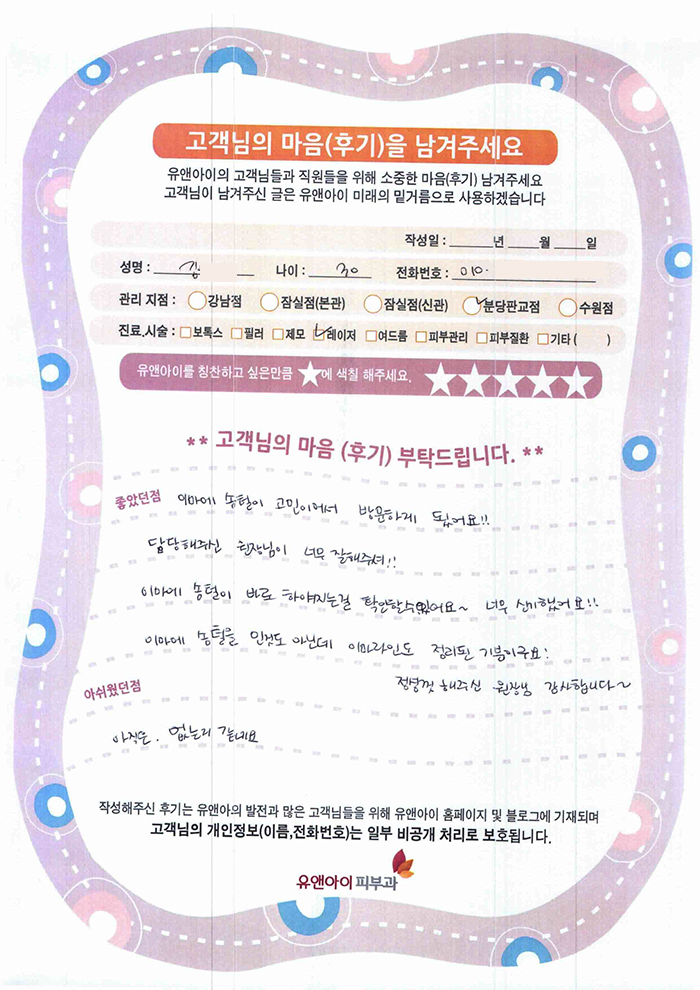 고객님의 마음(후기)을 남겨주세요
유앤아이의 고객님들과 직원들을 위해 소중한 마음(후기) 남겨주세요
고객님이 남겨주신 글은 유앤아이 미래의 밑거름으로 사용하겠습니다
작성일 : 년 월 일
성명 : 김 나이 : 30 전화번호 : 010-
관리 지점 : 강남점 잠실점(본관) 잠실점(신관) 분당판교점 수원점
진료.시술 : 보톡스 필러 제모 레이저 여드름 피부관리 피부질환 기타 ( )
유앤아이를 칭찬하고 싶은만큼 ★에 색칠 해주세요. ★★★★★
** 고객님의 마음 (후기) 부탁드립니다. **
좋았던점 이마에 솜털이 고민이여서 방문하게 됬어요!!
담당해주신 원장님이 너무 잘해주셔!!
이마에 솜털이 바로 하얘지는걸 확인할수있어요~ 너무 신기했어요!!
이마에 솜털을 민것도 아닌데 이마라인도 정리된 기분이구요!
정성껏 해주신 원장님 감사합니다~
아쉬웠던점
아직은. 없는거 같네요
작성해주신 후기는 유앤아의 발전과 많은 고객님들을 위해 유앤아이 홈페이지 및 블로그에 기재되며
고객님의 개인정보(이름,전화번호)는 일부 비공개 처리로 보호됩니다.
유앤아이피부과